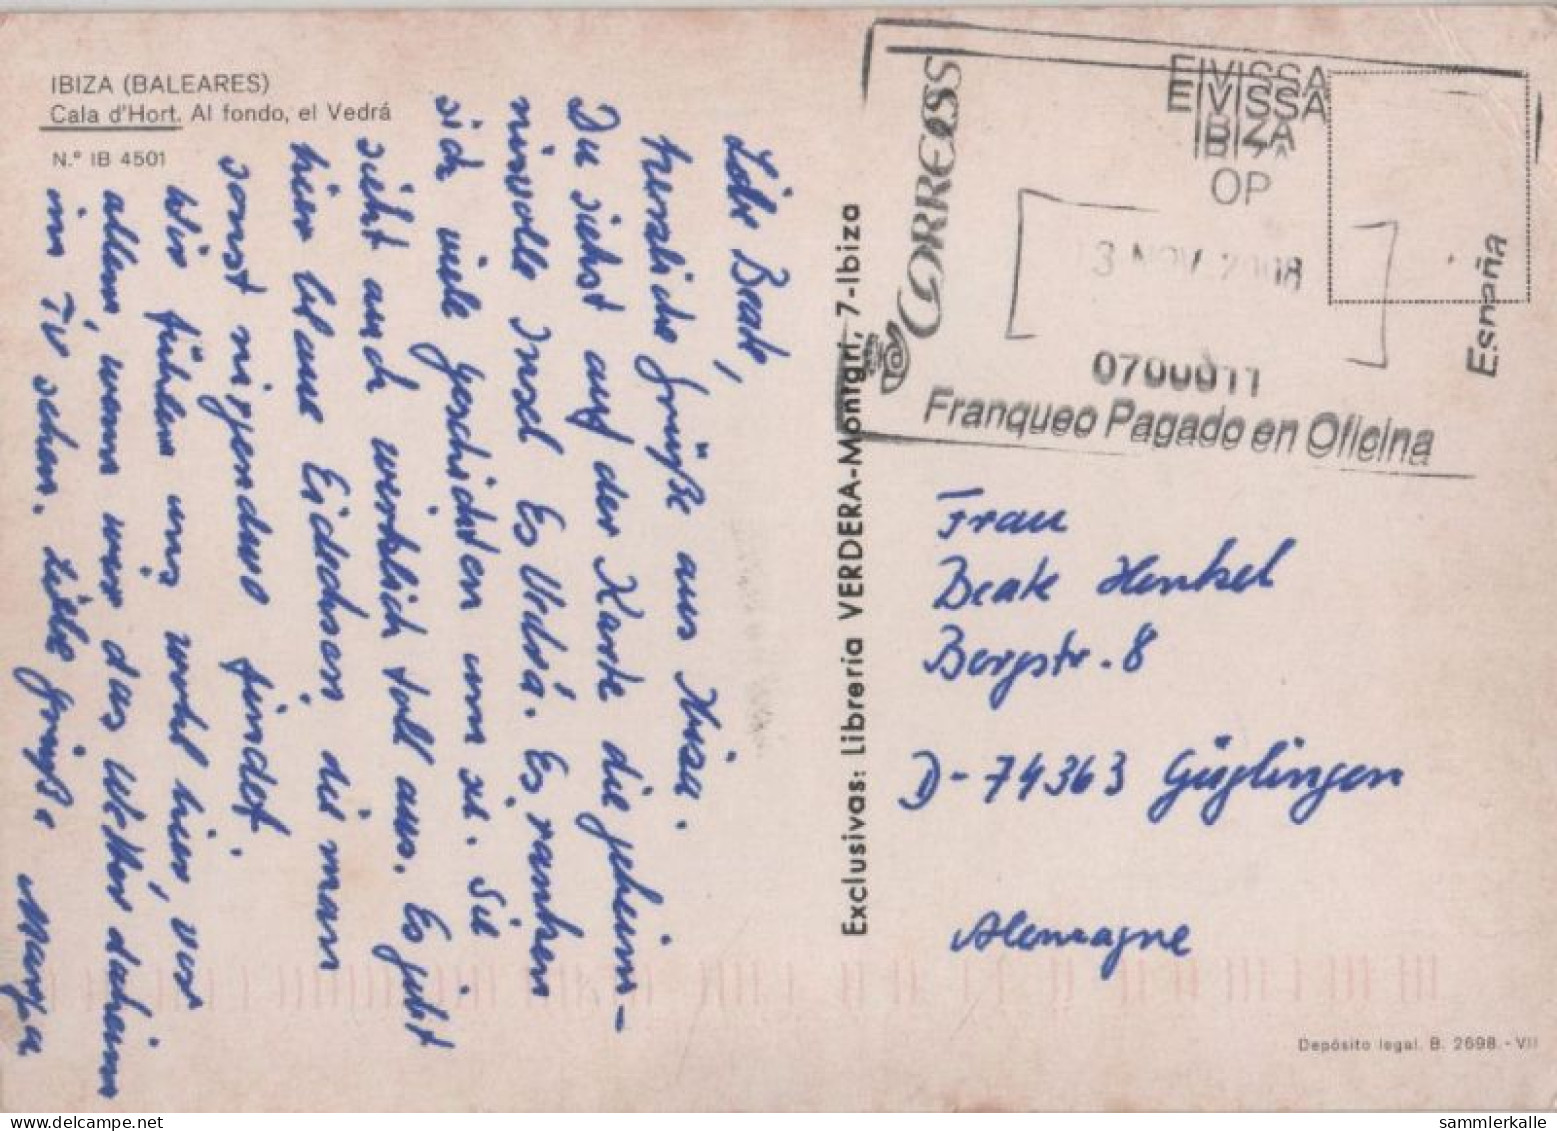 IBIZA (BALEARES)
Cala d'Hort. Al fondo, el Vedrá
N.º IB 4501
Liebe Beate,
herzliche Grüße aus Ibiza.
Du siehst auf der Karte die geheim-
nisvolle Insel Es Vedrá. Es ranken
sich viele Geschichten um sie. Sie
sieht auch wirklich toll aus. Es gibt
hier blaue Eidechsen, die man
sonst nirgendwo findet.
Wir fühlen uns wohl hier, vor
allem, wenn wir das Wetter daheim
im TV sehen. Liebe Grüße
Exclusivas: Libreria VERDERA-Montgri, 7-Ibiza
CORREOS
EIVISSA
EIVISSA
IBIZA
OP
3 NOV 2008
0700011
Franqueo Pagado en Oficina
España
Frau
Beate Henkel
Bergstr. 8
D-74363 Güglingen
Alemagne
Depósito legal. B. 2698.-VII
sammlerkalle